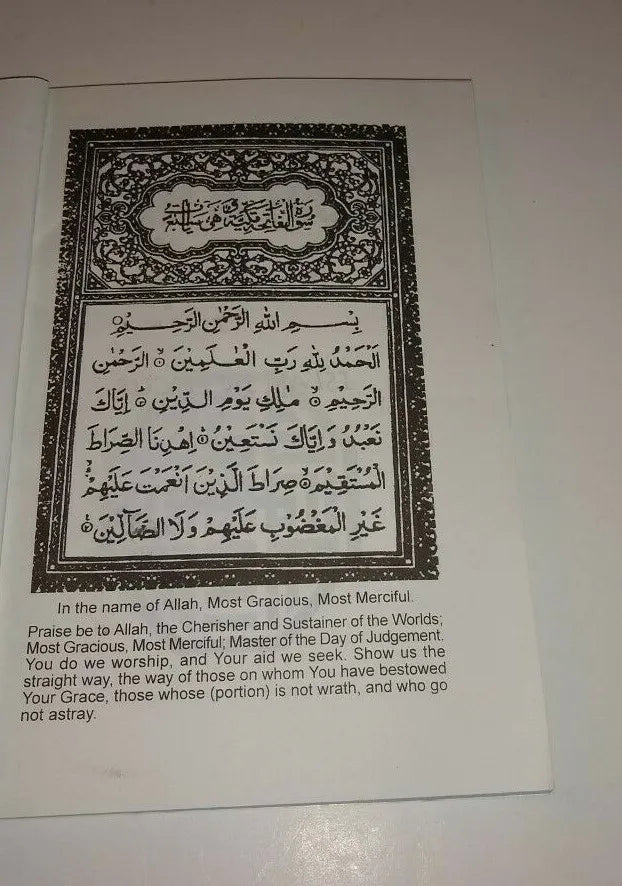 سورة الفاتحة مكية وهي سبع آيات
بِسْمِ اللّٰهِ الرَّحْمٰنِ الرَّحِيْمِ ○
اَلْحَمْدُ لِلّٰهِ رَبِّ الْعٰلَمِيْنَ ○ الرَّحْمٰنِ
الرَّحِيْمِ ○ مٰلِكِ يَوْمِ الدِّيْنِ ○ اِيَّاكَ
نَعْبُدُ وَ اِيَّاكَ نَسْتَعِيْنُ ○ اِهْدِنَا الصِّرَاطَ
الْمُسْتَقِيْمَ ○ صِرَاطَ الَّذِيْنَ اَنْعَمْتَ عَلَيْهِمْ
غَيْرِ الْمَغْضُوْبِ عَلَيْهِمْ وَلَا الضَّآلِّيْنَ ○
In the name of Allah, Most Gracious, Most Merciful.
Praise be to Allah, the Cherisher and Sustainer of the Worlds;
Most Gracious, Most Merciful; Master of the Day of Judgement.
You do we worship, and Your aid we seek. Show us the
straight way, the way of those on whom You have bestowed
Your Grace, those whose (portion) is not wrath, and who go
not astray.